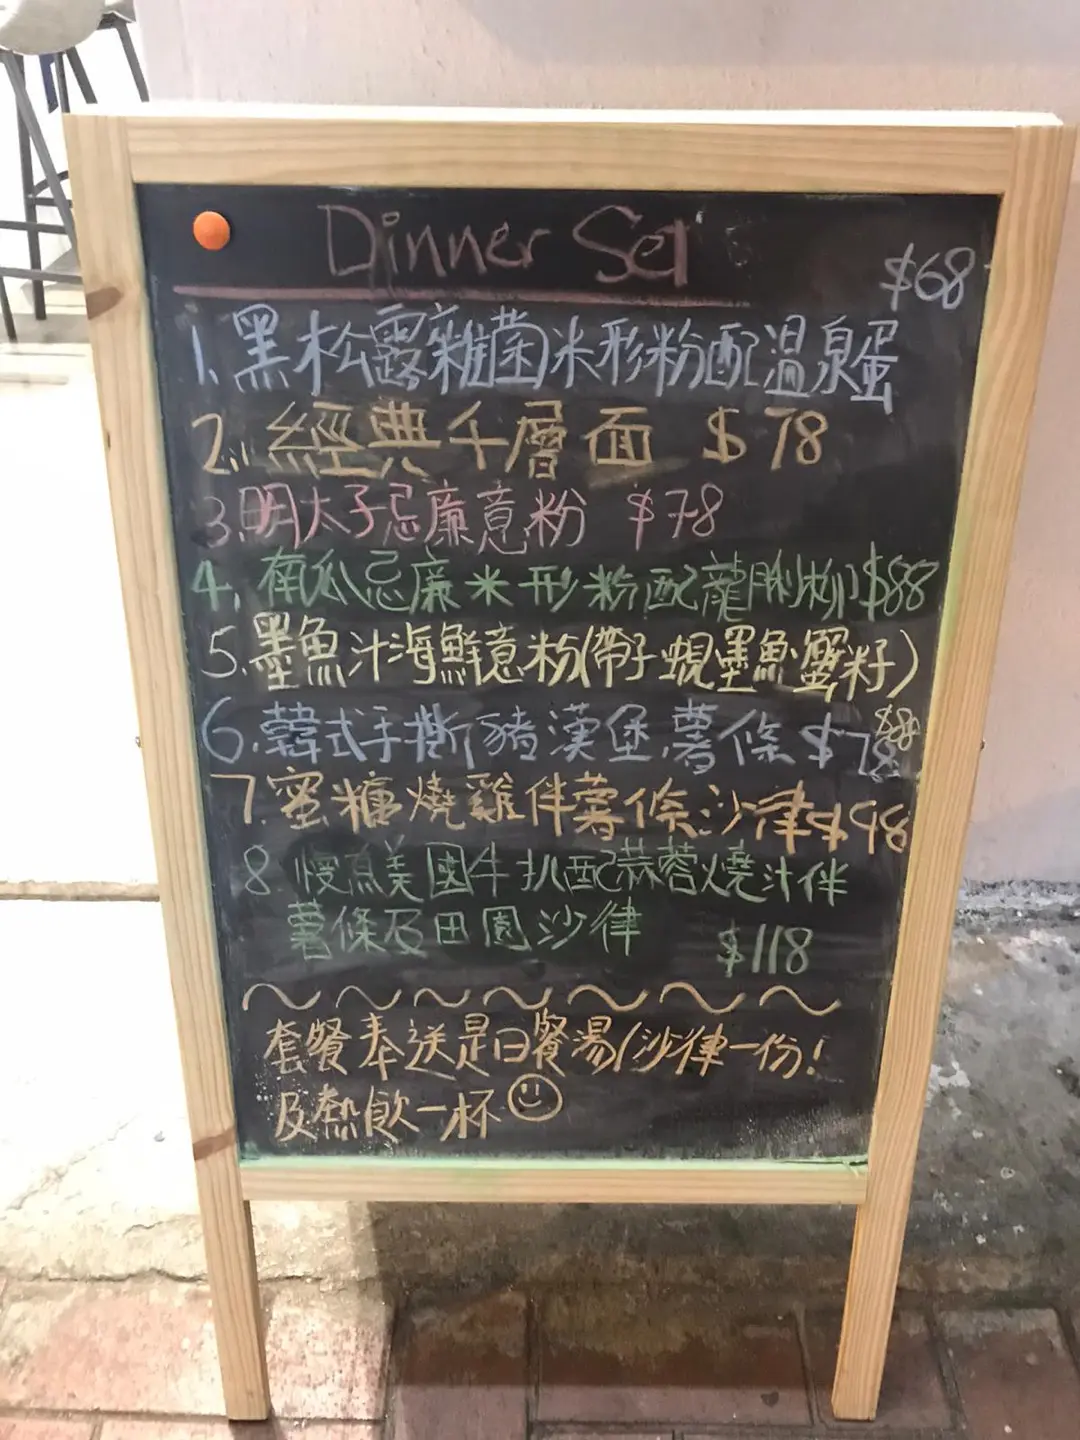 Dinner Set
$68
1. 黑松露雜菌米形粉配溫泉蛋
2. 經典千層面 $78
3. 明太子忌廉意粉 $78
4. 南瓜忌廉米形粉配龍脷柳 $88
5. 墨魚汁海鮮意粉(帶子蜆墨魚蟹籽)
$88
6. 韓式手撕豬漢堡,薯條 $78
7. 蜜糖燒雞伴薯條沙律 $98
8. 慢煮美國牛扒配蒜蓉燒汁伴
薯條及田園沙律 $118
套餐奉送是日餐湯/沙律一份!
及熱飲一杯